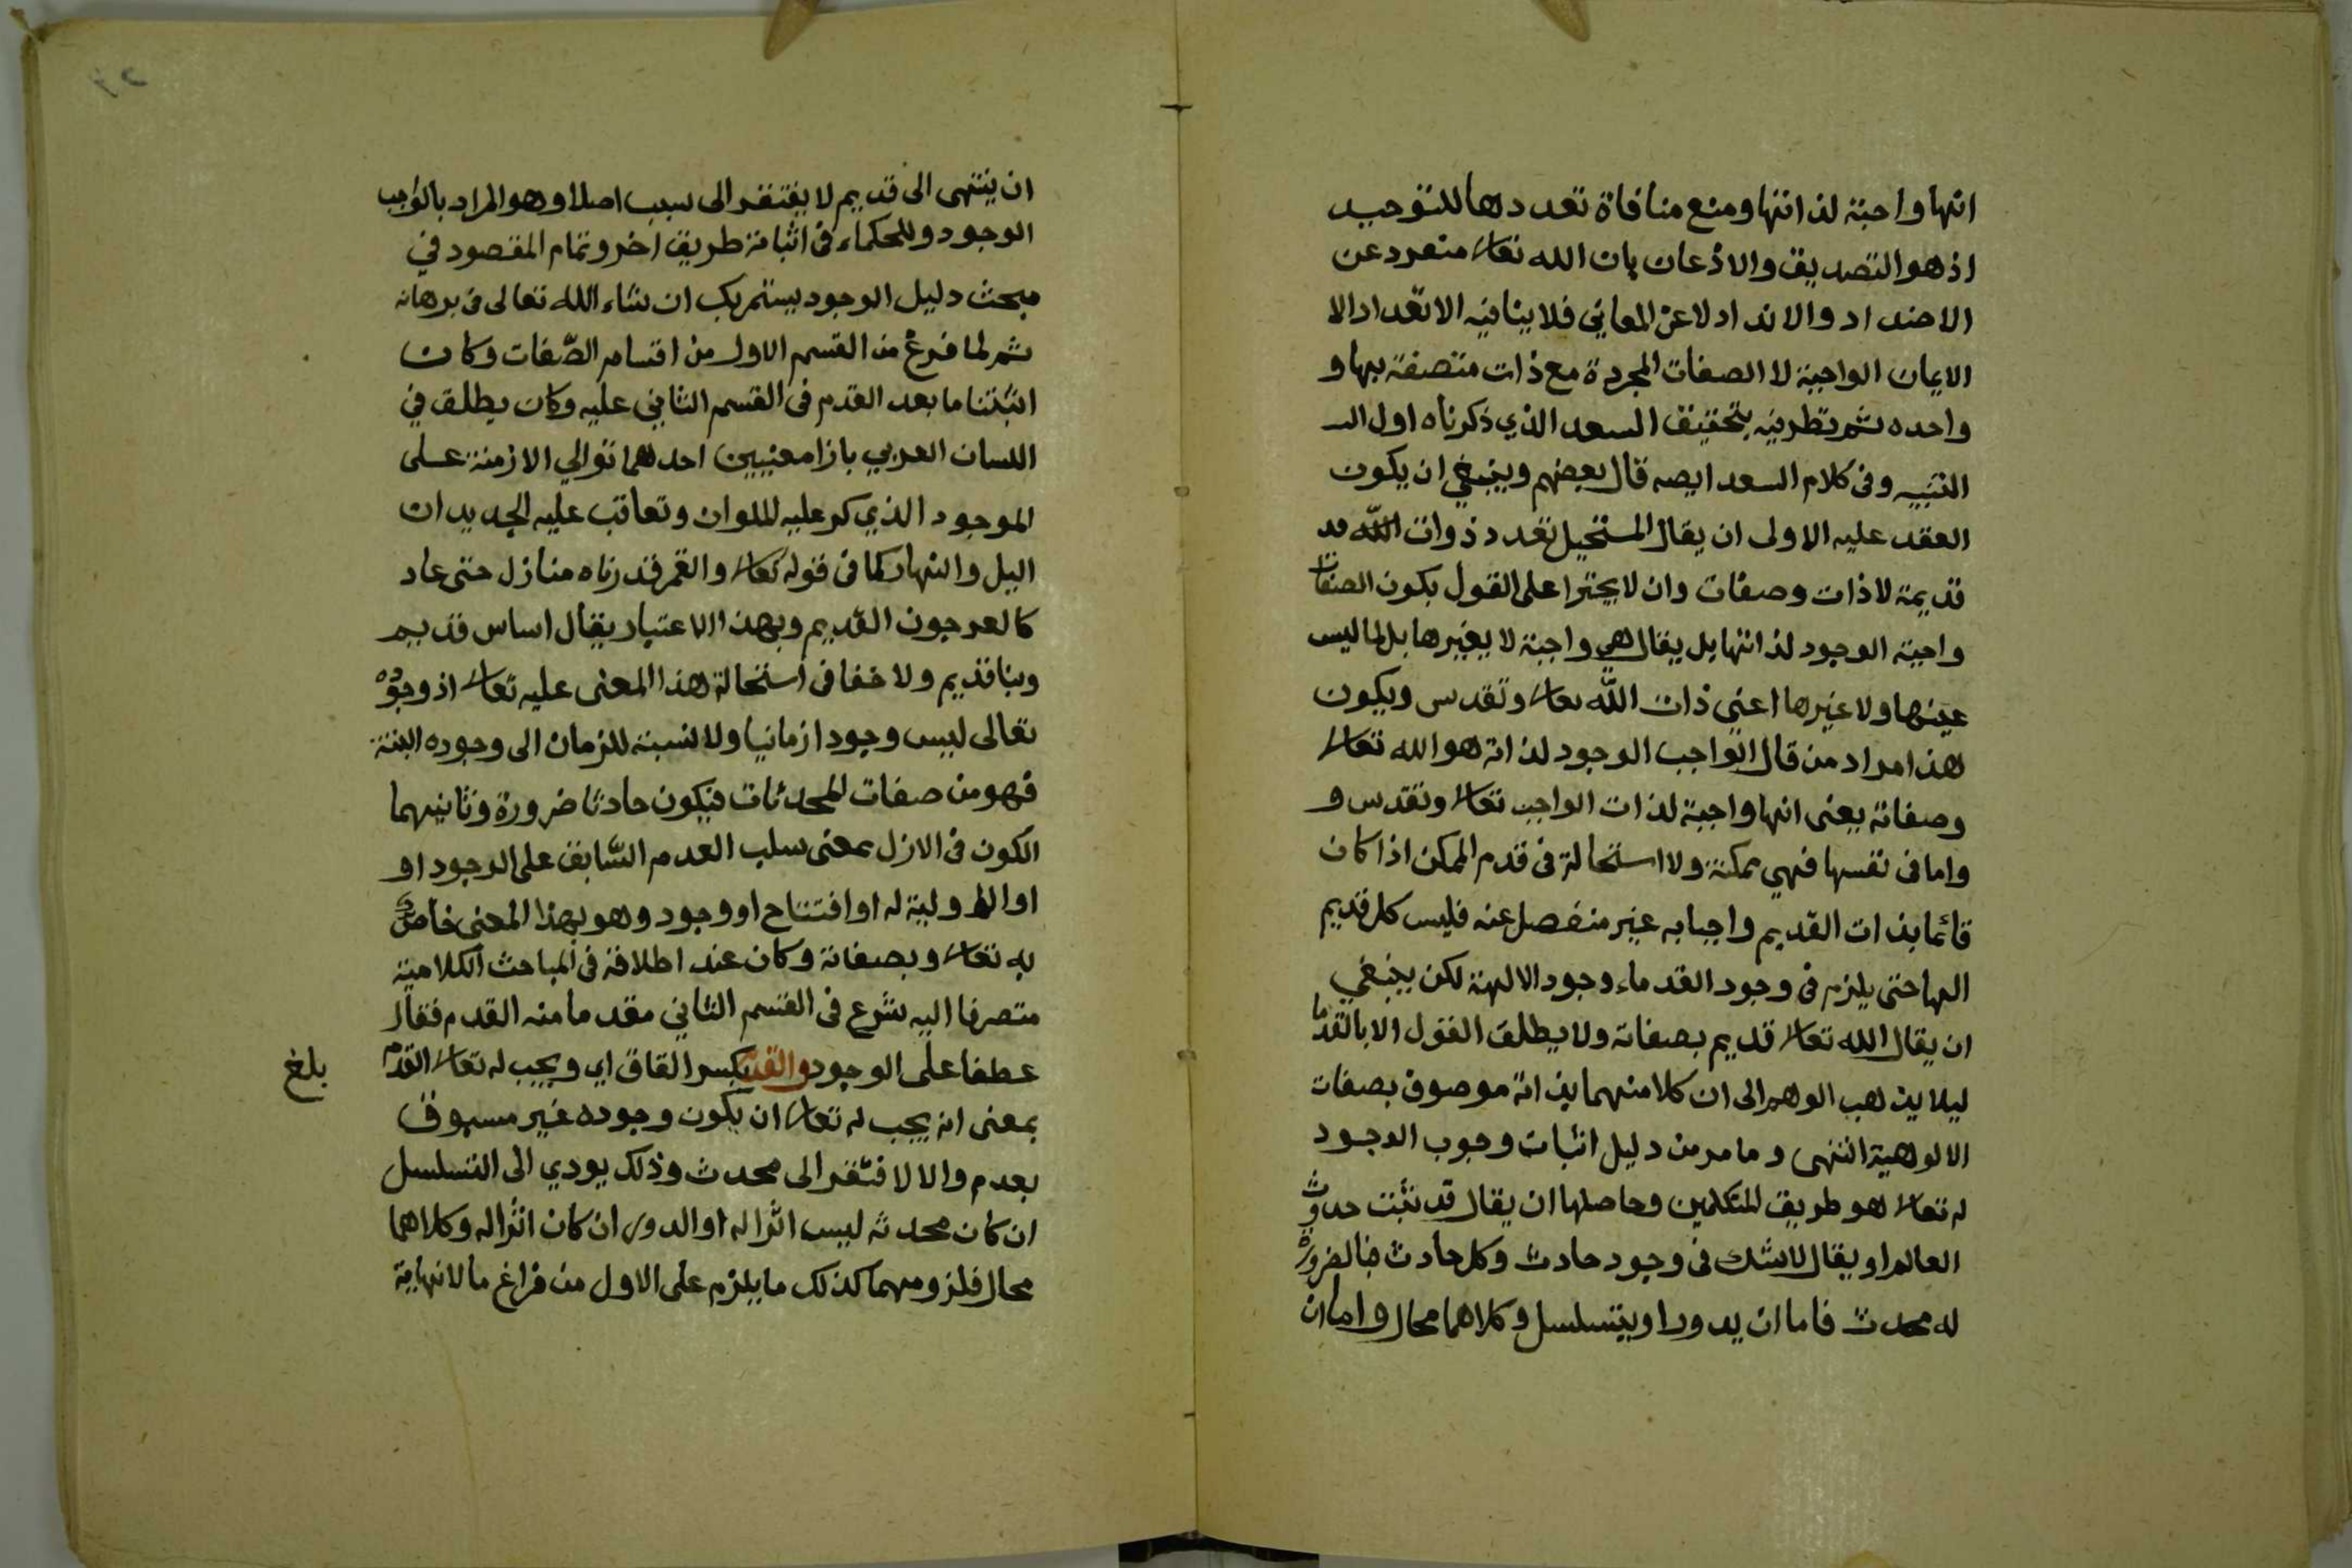 انها واجبة لذاتها ومنع منافاة تعددها للتوحيد
اذ هو التصديق والاذعان بان الله تعالى منفرد عن
الاضداد والانداد لا عن المعاني فلا ينافيه الا تعداد الا
الايمان الواجبة لا الصفات المجردة مع ذات متصفة بها و
واحده ثم تطرفيه بتحقيق السعد الذي ذكرناه اول الـ
التنبيه وفى كلام السعد ايصه قال بعضهم وينبغي ان يكون
العقد عليه الاولى ان يقال المستحيل تعدد ذوات الله قد
قديمة لا ذات وصفات وان لا يجترا على القول بكون الصفات
واجبة الوجود لذاتها بل يقال هي واجبة لا بغيرها بل لما ليس
عينها ولا غيرها اعني ذات الله تعالى وتقدس ويكون
هذا مراد من قال الواجب الوجود لذاته هو الله تعالى
وصفاته يعنى انها واجبة لذات الواجب تعالى وتقدس و
واما فى نفسها فهي ممكنة ولا استحالة فى قدم الممكن اذا كان
قائما بذات القديم واجبا به غير منفصل عنه فليس كل قديم
الها حتى يلزم فى وجود القدماء وجود الالهة لكن ينبغي
ان يقال الله تعالى قديم بصفاته ولا يطلق القول الا بالقدما
ليلا يذهب الوهم الى ان كلا منهما بذاته موصوف بصفات
الالوهية انتهى وما مر من دليل اثبات وجوب الوجود
له تعالى هو طريق المتكلمين وحاصلها ان يقال قد ثبت حدوث
العالم او يقال لا شك فى وجود حادث وكل حادث فبالضرورة
له محدث فاما ان يدور او يتسلسل وكلاهما محال واما ان
ان ينتهى الى قديم لا يفتقر الى سبب اصلا وهو المراد بالواجب
الوجود وللحكماء فى اثباته طريق اخر وتمام المقصود في
مبحث دليل الوجود بيستمر بك ان شاء الله تعالى فى برهانه
ثم لما فرغ من القسم الاول من اقسام الصّفات وكان
اثبتنا ما بعد القدم فى القسم الثاني عليه وكان يطلق في
اللسان العربي بازا معنيين احدهما توالي الازمنة على
الموجود الذي كر عليه الملوان وتعاقب عليه الجديدان
اليل والنهار كما فى قوله تعالى والقمر قدرناه منازل حتى عاد
كالعرجون القديم وبهذا الاعتبار يقال اساس قديم
وبنا قديم ولا خفا فى استحالة هذا المعنى عليه تعالى اذ وجوده
تعالى ليس وجودا زمانيا ولا نسبة للزمان الى وجوده البتة
فهو من صفات المحدثات فيكون حادثا ضرورة وثانيهما
الكون فى الازل بمعنى سلب العدم السّابق على الوجود او
او الاولية له او افتتاح او وجود وهو بهذا المعنى خاص
به تعالى وبصفاته وكان عند اطلاقه فى المباحث الكلامية
متصرفا اليه شرع فى القسم الثاني مقدما منه القدم فقال
عطفا على الوجود والقدم بكسر القاف اي ويجب له تعالى القدم
بلغ
بمعنى انه يجب له تعالى ان يكون وجوده غير مسبوق
بعدم والا لافتقر الى محدث وذلك يودي الى التسلسل
ان كان محدثه ليس اثرا له او الدور ان كان اثرا له وكلاهما
محال فلزومهما كذلك ما يلزم على الاول من فراغ ما لا نهاية